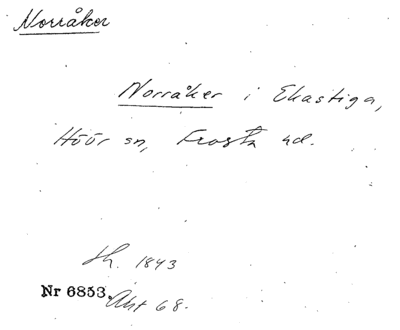 Norråker
Norråker i Ekastiga,
Höör sn, Frosta hd.
Lh. 1843
Nr 6853. Akt 68.